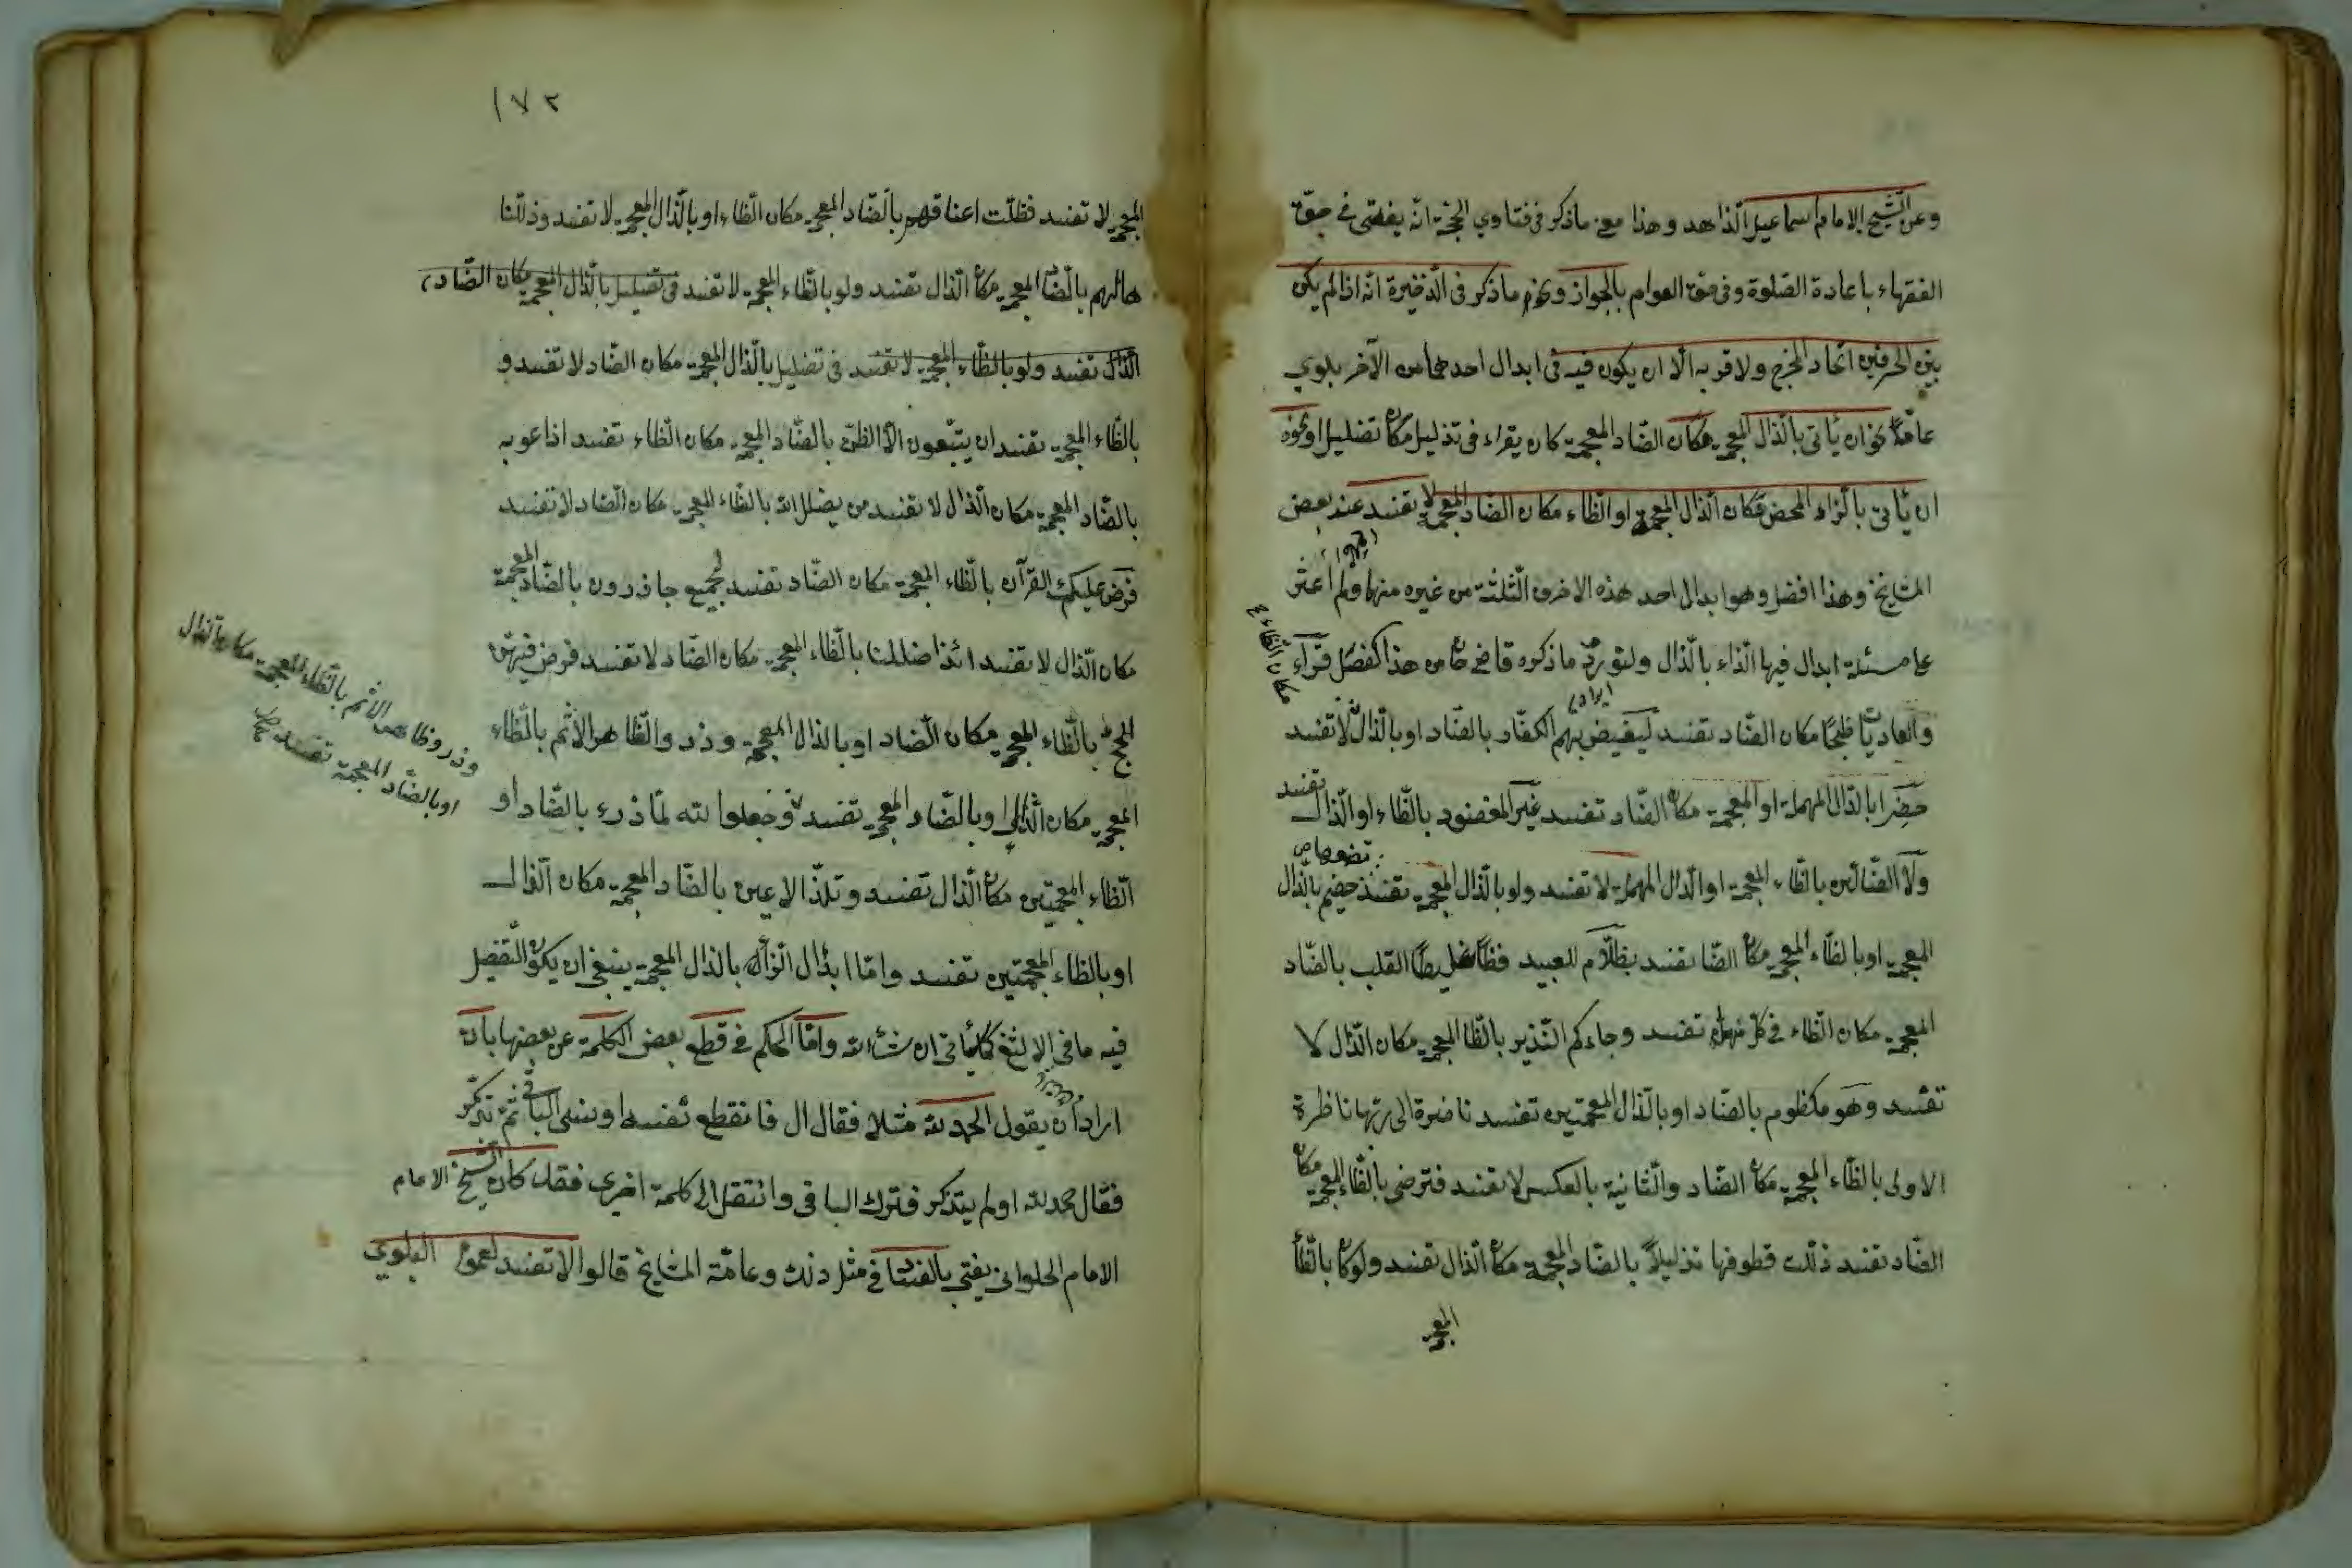 وعن الشيخ الامام اسماعيل الزاهد وهذا معنى ما ذكر في فتاوي الحجة انه يفتى في حق
الفقهاء باعادة الصلوة وفى حق العوام بالجواز ونحوه ما ذكر فى الذخيرة انه اذا لم يكن
بين الحرفين اتحاد المخرج ولا قربه الا ان يكون فيه فى ابدال احدهما من الآخر بلوي
عامة نحو ان يأتى بالذال المعجمة مكان الضاد المعجمة كان يقراء فى تذليل مكان تضليل او نحوه
ان يأتى بالزاء المحض مكان الذال المعجمة او الظاء مكان الضاد المعجمة لا تفسد عند بعض
المشايخ وهذا افضل وهو ابدال احد هذه الاحرف الثلثة من غيره منها ولم اعثر
على مسئلة ابدال فيها الزاء بالذال ولنورد ما ذكره قاضي خان من هذا الفصل قراء
والعاديات ظبحا مكان الضاد تفسد ليغيض بهم الكفار بالضاد او بالذال لا تفسد
مكان الظاء
خضرا بالدال المهملة او المعجمة مكان الضاد تفسد غير المغضوب بالظاء او الذال تفسد
ولا الضالين بالظاء المعجمة او الدال المهملة لا تفسد ولو بالذال المعجمة تفسد خضيم بالذال
المعجمة او بالظاء المعجمة مكان الضا تفسد بظلام للعبيد فظا غليظ القلب بالضاد
المعجمة مكان الظاء في كل منهما تفسد وجاءكم النذير بالظا المعجمة مكان الذال لا
تفسد وهو مكظوم بالضاد او بالذال المعجمتين تفسد ناضرة الى ربها ناظرة
الاولى بالظاء المعجمة مكان الضاد والثانية بالعكس لا تفسد فترضى بالظاء المعجمة مكان
الضاد تفسد ذللت قطوفها تذليلا بالضاد المعجمة مكان الذال تفسد ولو كان بالظاء
المعجمة
١٧٢
المعجمة لا تفسد فظلت اعناقهم بالضاد المعجمة مكان الظاء او بالذال المعجمة لا تفسد وذللنا
هالهم بالضاد المعجمة مكان الذال تفسد ولو بالظاء المعجمة لا تفسد فى تضليل بالذال المعجمة مكان الضاد
الذال تفسد ولو بالظاء المعجمة لا تفسد فى تضليل بالذال المعجمة مكان الضاد لا تفسد و
بالظاء المعجمة تفسد ان يتبعون الا الظن بالضاد المعجمة مكان الظاء تفسد اذا عوبه
بالضاد المعجمة مكان الذال لا تفسد من يضلل الله بالظاء المعجمة مكان الضاد لا تفسد
فرض عليك القرآن بالظاء المعجمة مكان الضاد تفسد لجميع حاذرون بالضاد المعجمة
مكان الذال لا تفسد ائذا ضللنا بالظاء المعجمة مكان الضاد لا تفسد فرض فيهن
الحج بالظاء المعجمة مكان الضاد او بالذال المعجمة وذر والظاهر الاثم بالظاء
وذروا ظاهر الاثم بالظاء المعجمة مكان الذال
او بالضاد المعجمة تفسد
المعجمة مكان الذال او بالضاد المعجمة تفسد وجعلوا لله لما ذرء بالضاد او
الظاء المعجمتين مكان الذال تفسد وتلذ الاعين بالضاد المعجمة مكان الذال
او بالظاء المعجمتين تفسد واما ابدال الزاء بالذال المعجمة ينبغى ان يكون التفصيل
فيه ما فى الالثغ كما يأتى ان شاء الله واما الحكم فى قطع بعض الكلمة عن بعضها بان
اراد ان يقول الحمد لله مثلا فقال ال فانقطع نفسه او نسى الباقى ثم تذكر
فقال حمد لله او لم يتذكر فترك الباقى وانتقل الى كلمة اخرى فقد كان الشيخ الامام
الامام الحلوانى يفتى بالفساد فى مثل ذلك وعامة المشايخ قالوا لا تفسد لعموم البلوي